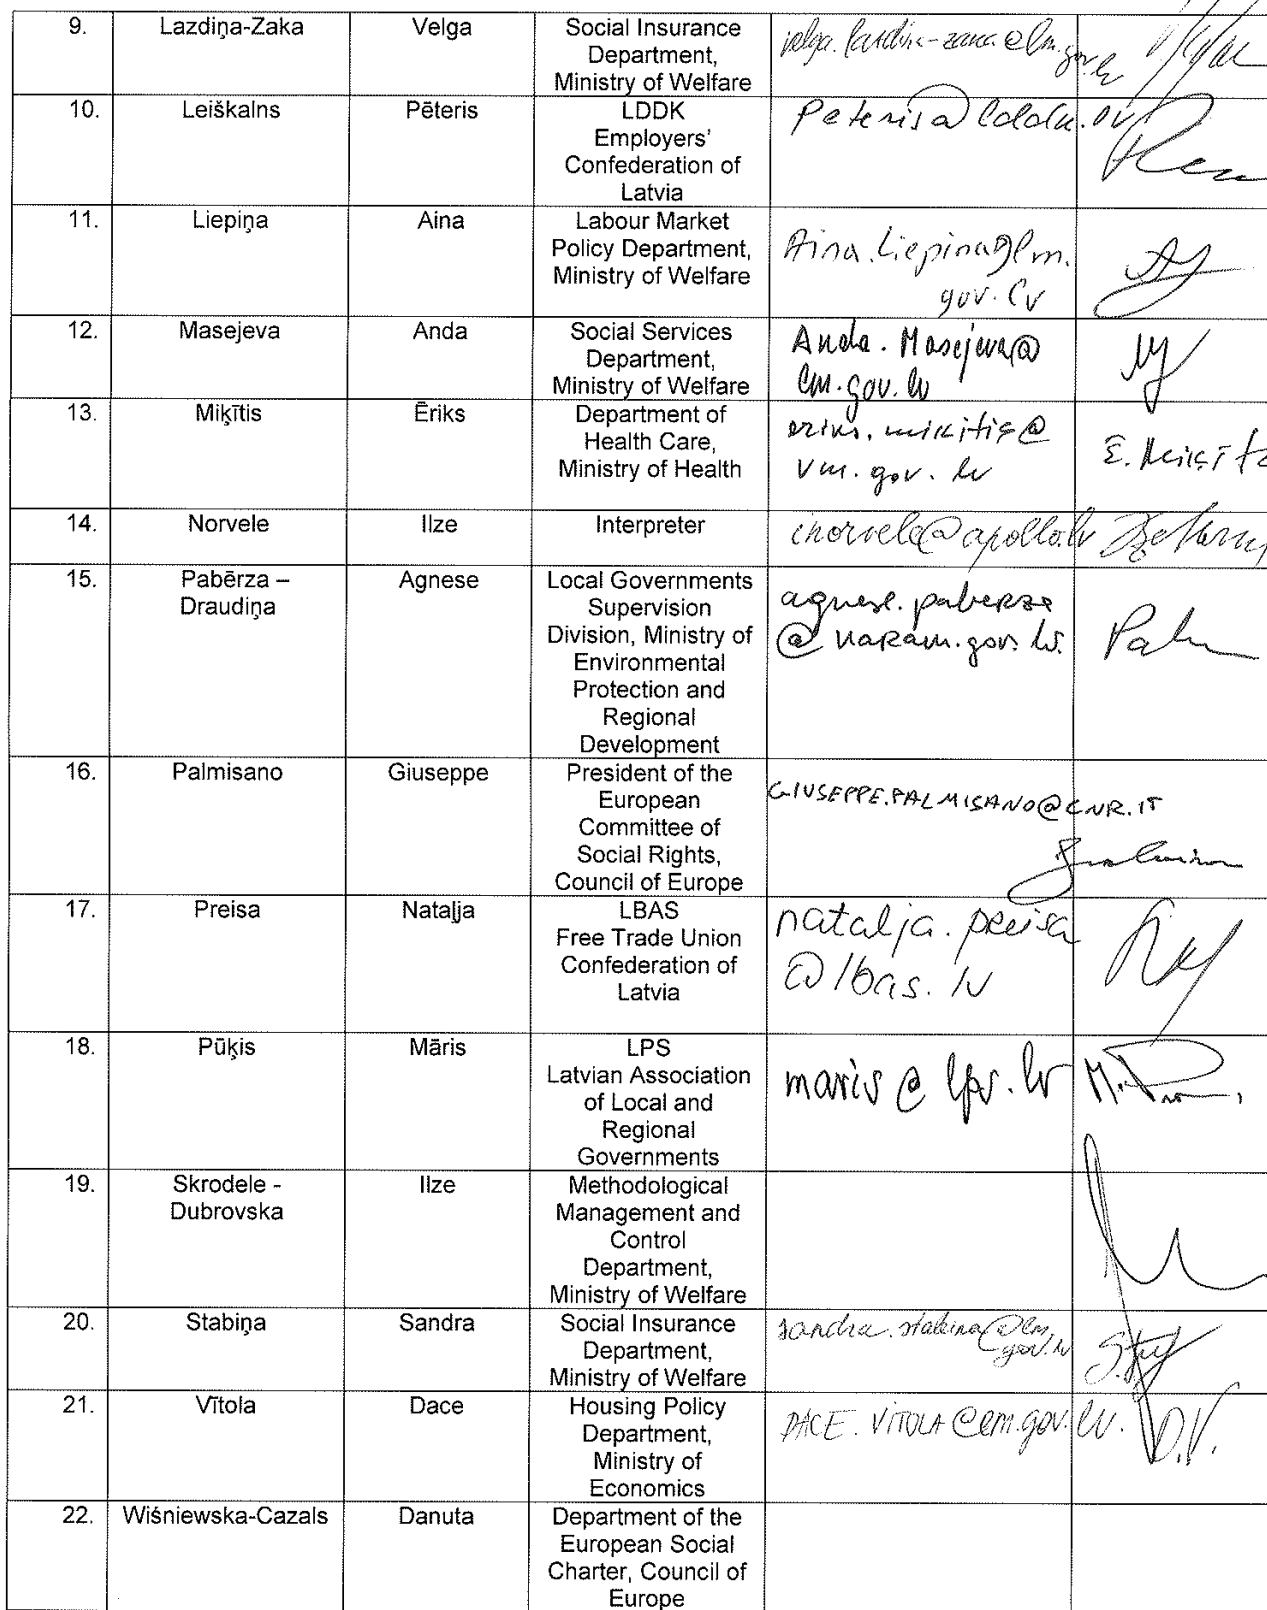 9. Lazdiņa-Zaka Velga Social Insurance
Department,
Ministry of Welfare
10. Leiškalns Pēteris LDDK
Employers'
Confederation of
Latvia
peteris@lddk.lv
11. Liepiņa Aina Labour Market
Policy Department,
Ministry of Welfare
Aina.Liepina@lm.
gov.lv
12. Masejeva Anda Social Services
Department,
Ministry of Welfare
Anda.Masejeva@
lm.gov.lv
13. Miķītis Ēriks Department of
Health Care,
Ministry of Health
eriks.mikitis@
vm.gov.lv
14. Norvele Ilze Interpreter inorvele@apollo.lv
15. Pabērza – Agnese Local Governments
Draudiņa Supervision
Division, Ministry of
Environmental
Protection and
Regional
Development
agnese.paberza
@varam.gov.lv.
16. Palmisano Giuseppe President of the
European
Committee of
Social Rights,
Council of Europe
GIUSEPPE.PALMISANO@CNR.IT
17. Preisa Nataļja LBAS
Free Trade Union
Confederation of
Latvia
natalja.preisa
@lbas.lv
18. Pūķis Māris LPS
Latvian Association
of Local and
Regional
Governments
maris@lps.lv
19. Skrodele - Ilze Methodological
Dubrovska Management and
Control
Department,
Ministry of Welfare
20. Stabiņa Sandra Social Insurance
Department,
Ministry of Welfare
sandra.stabina@lm.
gov.lv
21. Vītola Dace Housing Policy
Department,
Ministry of
Economics
DACE.VITOLA@em.gov.lv. D.V.
22. Wiśniewska-Cazals Danuta Department of the
European Social
Charter, Council of
Europe